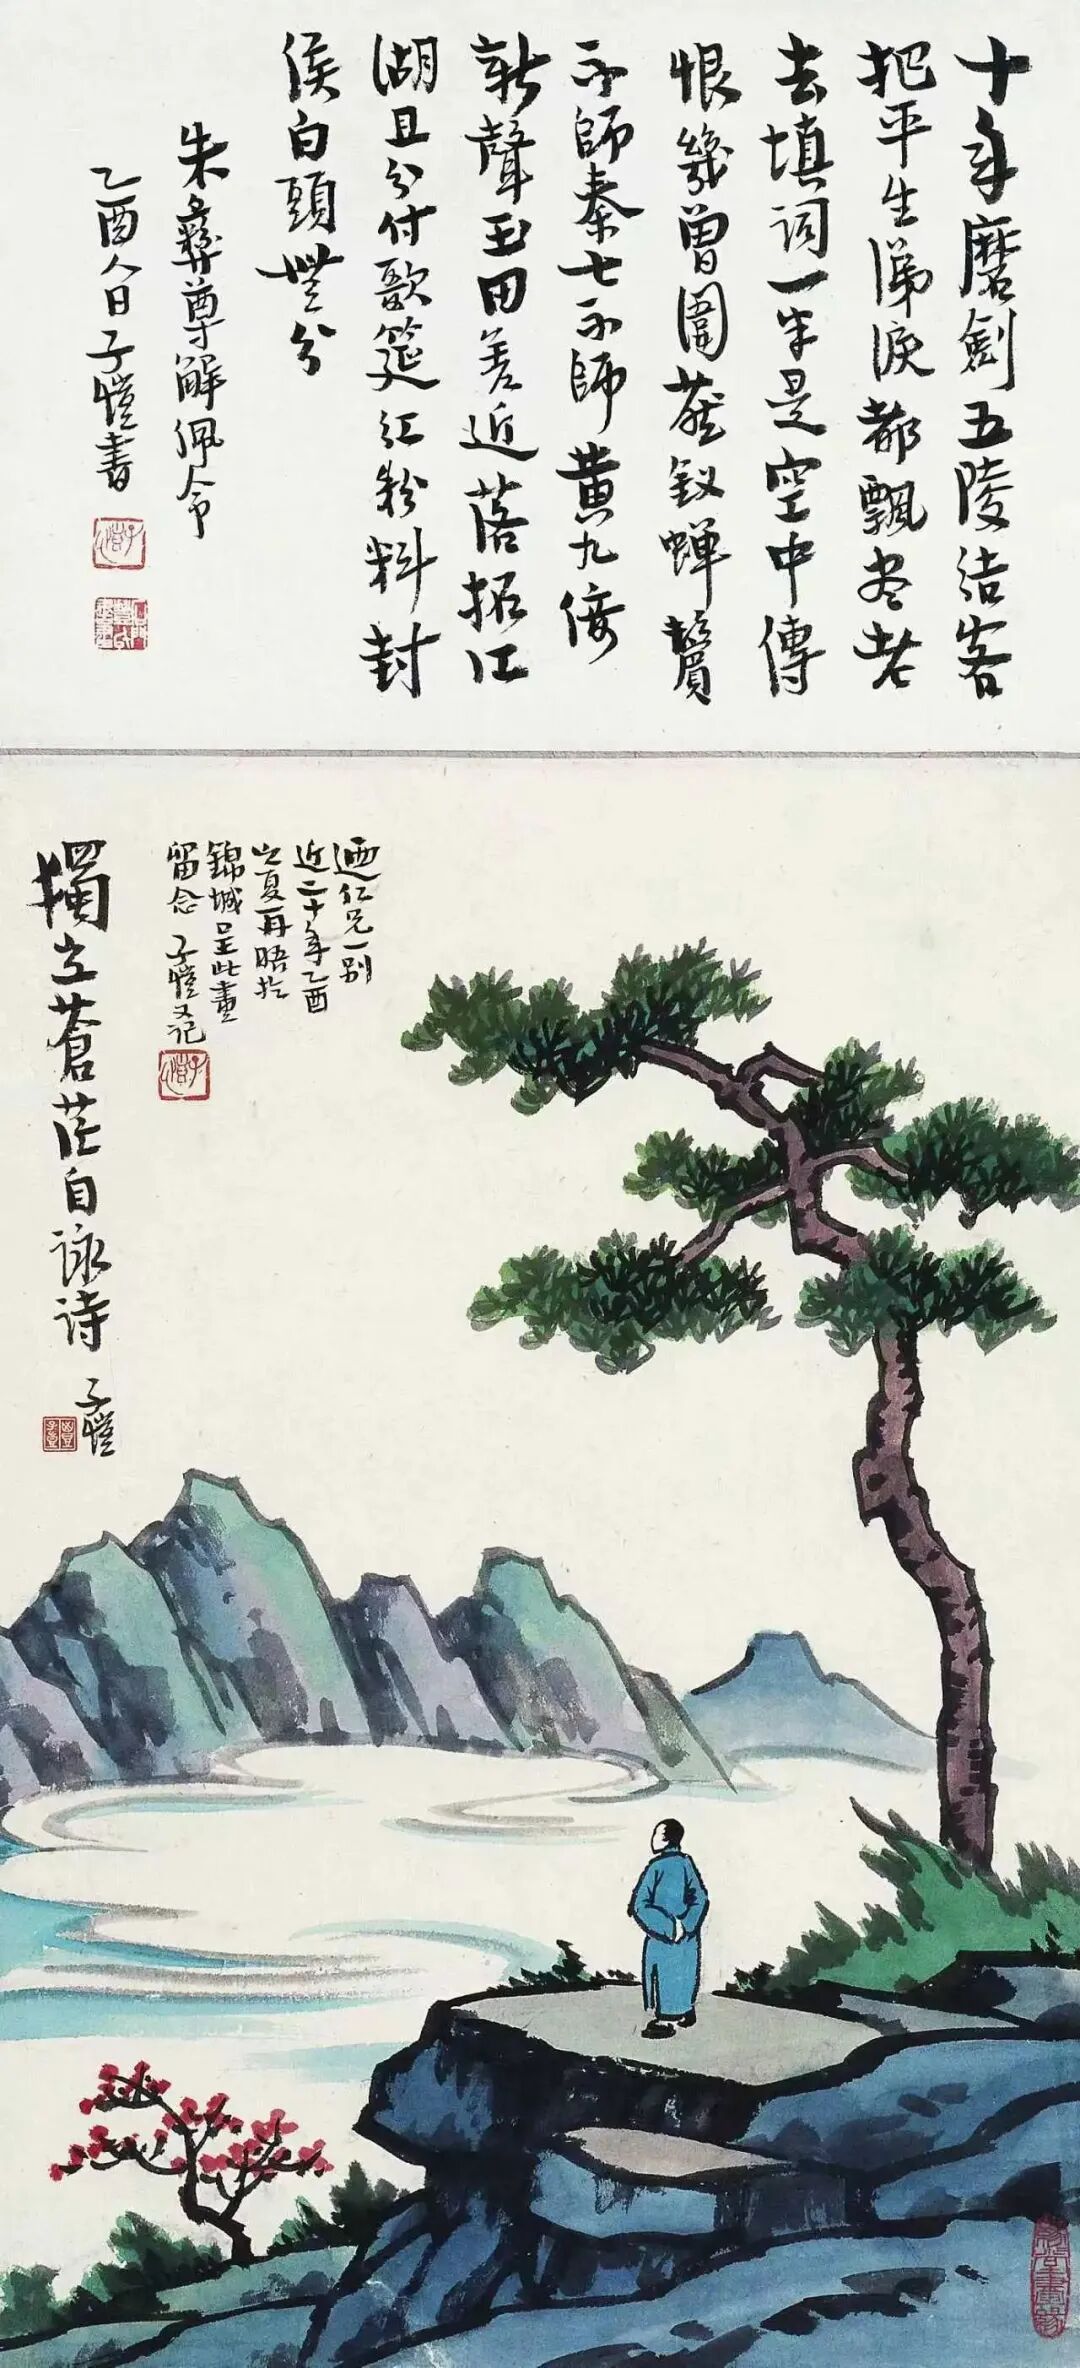 十年磨劍五陵结客
把平生涕淚都飄尽老
去填词一半是空中傳
恨幾曾圍燕釵蟬鬢
不師秦七不師黄九倚
新聲玉田差近落拓江
湖且分付歌筵红粉料封
侯白頭無分
朱彝尊解佩令
乙酉人日子愷書
子愷
迺仁兄一别
近二十年乙酉
之夏再晤於
錦城呈此畫
留念 子愷又记
子愷
獨立蒼茫自詠诗 子愷